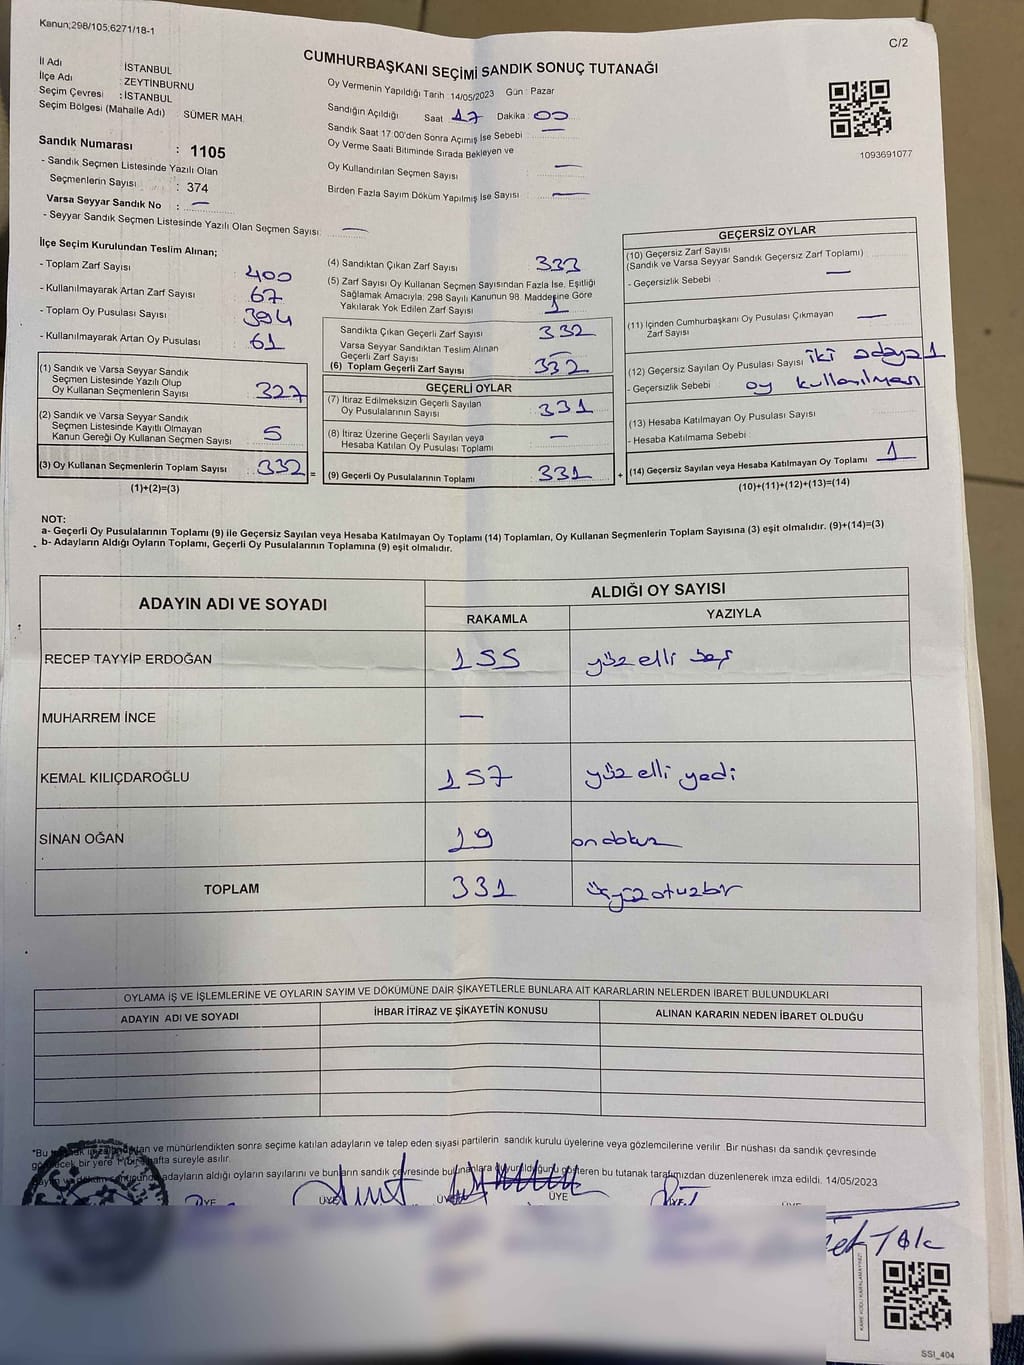 Kanun;298/105;6271/18-1
C/2
CUMHURBAŞKANI SEÇİMİ SANDIK SONUÇ TUTANAĞI
İl Adı : İSTANBUL
İlçe Adı : ZEYTİNBURNU
Seçim Çevresi : İSTANBUL
Seçim Bölgesi (Mahalle Adı) : SÜMER MAH.
Oy Vermenin Yapıldığı Tarih 14/05/2023 Gün : Pazar
Sandığın Açıldığı Saat 17 Dakika : 00
Sandık Saat 17:00'den Sonra Açımış İse Sebebi : —
Oy Verme Saati Bitiminde Sırada Bekleyen ve
Oy Kullandırılan Seçmen Sayısı : —
Birden Fazla Sayım Döküm Yapılmış İse Sayısı : —
1093691077
Sandık Numarası : 1105
- Sandık Seçmen Listesinde Yazılı Olan
Seçmenlerin Sayısı : 374
Varsa Seyyar Sandık No : —
- Seyyar Sandık Seçmen Listesinde Yazılı Olan Seçmen Sayısı: —
İlçe Seçim Kurulundan Teslim Alınan;
- Toplam Zarf Sayısı : 400
- Kullanılmayarak Artan Zarf Sayısı : 67
- Toplam Oy Pusulası Sayısı : 394
- Kullanılmayarak Artan Oy Pusulası : 61
(1) Sandık ve Varsa Seyyar Sandık
Seçmen Listesinde Yazılı Olup
Oy Kullanan Seçmenlerin Sayısı : 327
(2) Sandık ve Varsa Seyyar Sandık
Seçmen Listesinde Kayıtlı Olmayan
Kanun Gereği Oy Kullanan Seçmen Sayısı : 5
(3) Oy Kullanan Seçmenlerin Toplam Sayısı : 332 =
(1)+(2)=(3)
(4) Sandıktan Çıkan Zarf Sayısı : 333
(5) Zarf Sayısı Oy Kullanan Seçmen Sayısından Fazla İse, Eşitliği
Sağlamak Amacıyla; 298 Sayılı Kanunun 98. Maddesine Göre
Yakılarak Yok Edilen Zarf Sayısı : 1
Sandıkta Çıkan Geçerli Zarf Sayısı : 332
Varsa Seyyar Sandıktan Teslim Alınan
Geçerli Zarf Sayısı : —
(6) Toplam Geçerli Zarf Sayısı : 332
GEÇERLİ OYLAR
(7) İtiraz Edilmeksizin Geçerli Sayılan
Oy Pusulalarının Sayısı : 331
(8) İtiraz Üzerine Geçerli Sayılan veya
Hesaba Katılan Oy Pusulası Toplamı : —
(9) Geçerli Oy Pusulalarının Toplamı : 331 +
GEÇERSİZ OYLAR
(10) Geçersiz Zarf Sayısı
(Sandık ve Varsa Seyyar Sandık Geçersiz Zarf Toplamı)
- Geçersizlik Sebebi : —
(11) İçinden Cumhurbaşkanı Oy Pusulası Çıkmayan
Zarf Sayısı : —
(12) Geçersiz Sayılan Oy Pusulası Sayısı : iki adaya 1
- Geçersizlik Sebebi : oy kullanılması
(13) Hesaba Katılmayan Oy Pusulası Sayısı :
- Hesaba Katılmama Sebebi :
(14) Geçersiz Sayılan veya Hesaba Katılmayan Oy Toplamı : 1
(10)+(11)+(12)+(13)=(14)
NOT:
a- Geçerli Oy Pusulalarının Toplamı (9) ile Geçersiz Sayılan veya Hesaba Katılmayan Oy Toplamı (14) Toplamları, Oy Kullanan Seçmenlerin Toplam Sayısına (3) eşit olmalıdır. (9)+(14)=(3)
b- Adayların Aldığı Oyların Toplamı, Geçerli Oy Pusulalarının Toplamına (9) eşit olmalıdır.
ADAYIN ADI VE SOYADI
ALDIĞI OY SAYISI
RAKAMLA YAZIYLA
RECEP TAYYİP ERDOĞAN 155 yüz elli beş
MUHARREM İNCE —
KEMAL KILIÇDAROĞLU 157 yüz elli yedi
SİNAN OĞAN 19 on dokuz
TOPLAM 331 üçyüzotuzbir
OYLAMA İŞ VE İŞLEMLERİNE VE OYLARIN SAYIM VE DÖKÜMÜNE DAİR ŞİKAYETLERLE BUNLARA AİT KARARLARIN NELERDEN İBARET BULUNDUKLARI
ADAYIN ADI VE SOYADI İHBAR İTİRAZ VE ŞİKAYETİN KONUSU ALINAN KARARIN NEDEN İBARET OLDUĞU
*Bu ve mühürlendikten sonra seçime katılan adayların ve talep eden siyasi partilerin sandık kurulu üyelerine veya gözlemcilerine verilir. Bir nüshası da sandık çevresinde
bir yere 1 bir hafta süreyle asılır.
adayların aldığı oyların sayılarını ve bunların sandık çevresinde bulunanlara duyurulduğunu gösteren bu tutanak tarafımızdan düzenlenerek imza edildi. 14/05/2023
ÜYE ÜYE ÜYE ÜYE ÜYE ÜYE
KARE KODU KARALAMAYINIZ!
SSI_404